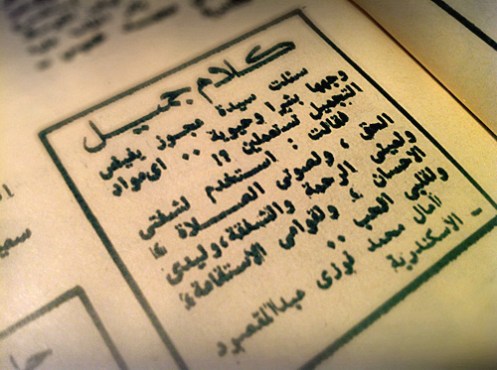 كلام جميل
سئلت سيدة عجوز يفيض
وجهها بشرا وحيوية .. اى مواد
التجميل تستعملين ؟!
فقالت : استخدم لشفتى
الحق ، ولصوتى الصلاة
الرحمة والشفقة ، وليدى
الاحسان ، ولقوامى الاستقامة
ولقلبى الحب ..
آمال محمد فوزى عبدالمقصود
- الاسكندرية